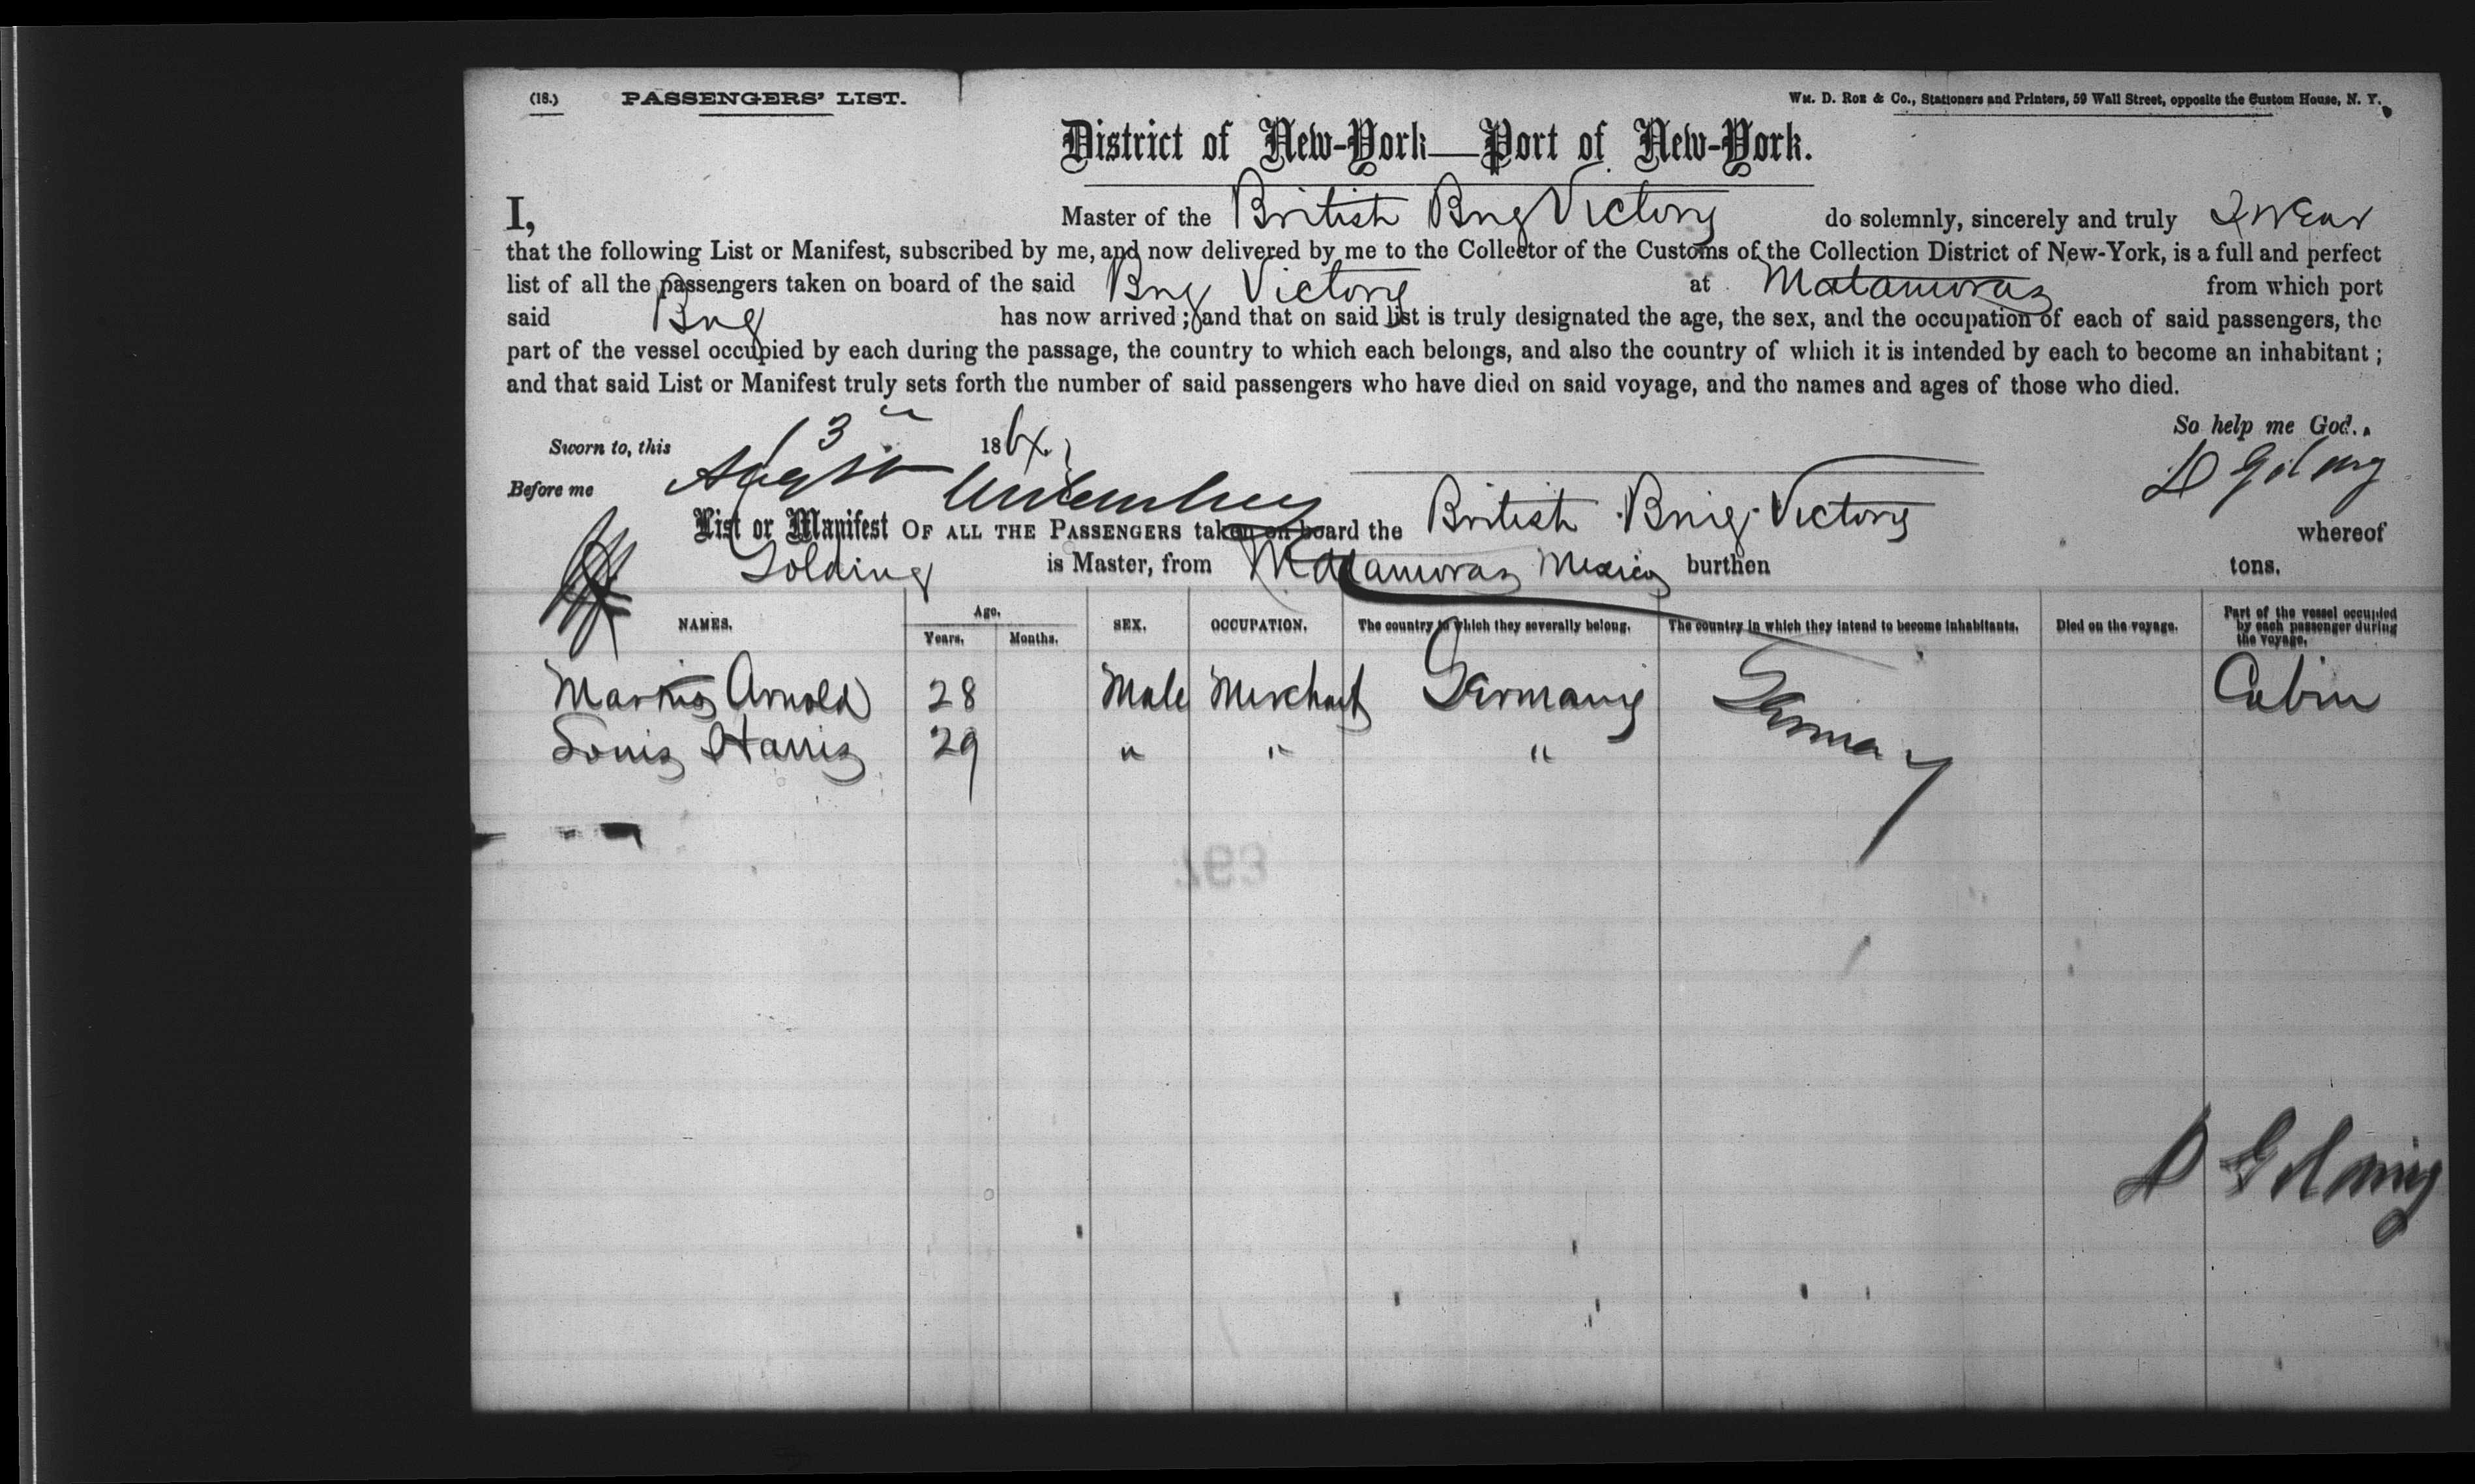 (18.) PASSENGERS' LIST. Wm. D. Roe & Co., Stationers and Printers, 59 Wall Street, opposite the Custom House, N. Y.
District of New-York—Port of New-York.
I, Master of the British Brig Victory do solemnly, sincerely and truly swear
that the following List or Manifest, subscribed by me, and now delivered by me to the Collector of the Customs of the Collection District of New-York, is a full and perfect
list of all the passengers taken on board of the said Brig Victory at Matamoras from which port
said Brig has now arrived; and that on said list is truly designated the age, the sex, and the occupation of each of said passengers, the
part of the vessel occupied by each during the passage, the country to which each belongs, and also the country of which it is intended by each to become an inhabitant;
and that said List or Manifest truly sets forth the number of said passengers who have died on said voyage, and the names and ages of those who died.
So help me God.
Sworn to, this 13 186
Before me August D Golding
List or Manifest OF ALL THE PASSENGERS taken on board the British Brig Victory whereof
Golding is Master, from Matamoras Mexico burthen tons.
NAMES. Age. Years. Months. SEX. OCCUPATION. The country to which they severally belong. The country in which they intend to become inhabitants. Died on the voyage. Part of the vessel occupied by each passenger during the voyage.
Markus Arnold 28 Male Merchant Germany Germany Cabin
Louis Harris 29 " " "
D Golding